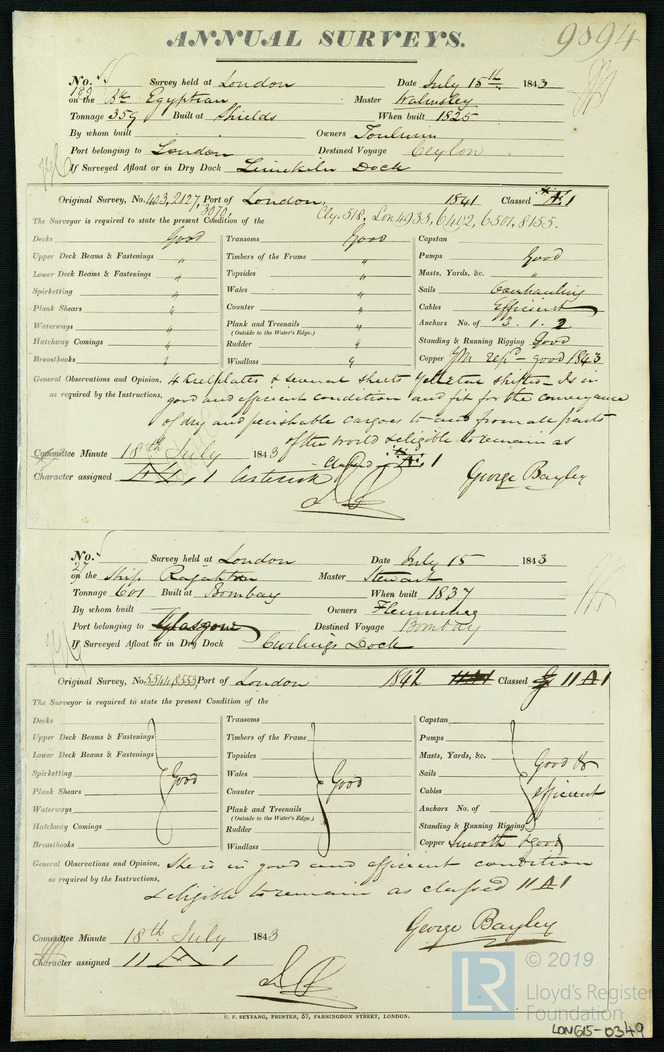 ANNUAL SURVEYS. 9894
No. 189 Survey held at London Date July 15th 1843
on the Bk Egyptian Master Walmsley
Tonnage 359 Built at Shields When built 1825
By whom built Owners Toulmin
Port belonging to London Destined Voyage Ceylon
If Surveyed Afloat or in Dry Dock Limekiln Dock
Original Survey, No. 403, 2127, 3070, Port of London, 1841 Classed Æ 1
The Surveyor is required to state the present Condition of the Cly. 518, Lon 4935, 6402, 6501, 8155.
Decks Good Transoms Good Capstan
Upper Deck Beams & Fastenings " Timbers of the Frame " Pumps Good
Lower Deck Beams & Fastenings " Topsides " Masts, Yards, &c. "
Spirketting " Wales " Sails
Plank Shears " Counter " Cables Efficient
Waterways " Plank and Treenails " Anchors No. of 3.1.2
(Outside to the Water's Edge.)
Hatchway Comings " Rudder " Standing & Running Rigging Good
Breasthooks " Windlass " Copper YM repd good 1843
General Observations and Opinion, 4 keelplates & several sheets Yellow metal shifted - Is in
as required by the Instructions, good and efficient condition and fit for the conveyance
of dry and perishable cargoes to and from all parts
of the world & eligible to remain as
Committee Minute 18th July 1843 classed Æ 1
Character assigned Æ 1 Asterisk George Bayley
No. 27 Survey held at London Date July 15 1843
on the Ship Rajahstan Master Stewart
Tonnage 601 Built at Bombay When built 1837
By whom built Owners Flemming
Port belonging to Glasgow Destined Voyage Bombay
If Surveyed Afloat or in Dry Dock Curlings Dock
Original Survey, No. 5544, 8553, Port of London 1842 Classed 11 A 1
The Surveyor is required to state the present Condition of the
Decks Transoms Capstan
Upper Deck Beams & Fastenings Timbers of the Frame Pumps
Lower Deck Beams & Fastenings Topsides Masts, Yards, &c. Good &
Spirketting Good Wales Good Sails
Plank Shears Counter Cables efficient
Waterways Plank and Treenails Anchors No. of
(Outside to the Water's Edge.)
Hatchway Comings Rudder Standing & Running Rigging
Breasthooks Windlass Copper Smooth & good
General Observations and Opinion, She is in good and efficient condition
as required by the Instructions, & eligible to remain as classed 11 A 1
George Bayley
Committee Minute 18th July 1843
Character assigned 11 A 1
C. F. SEYFANG, PRINTER, 57, FARRINGDON STREET, LONDON.
LR © 2019
Lloyd's Register
Foundation
LON615-0349